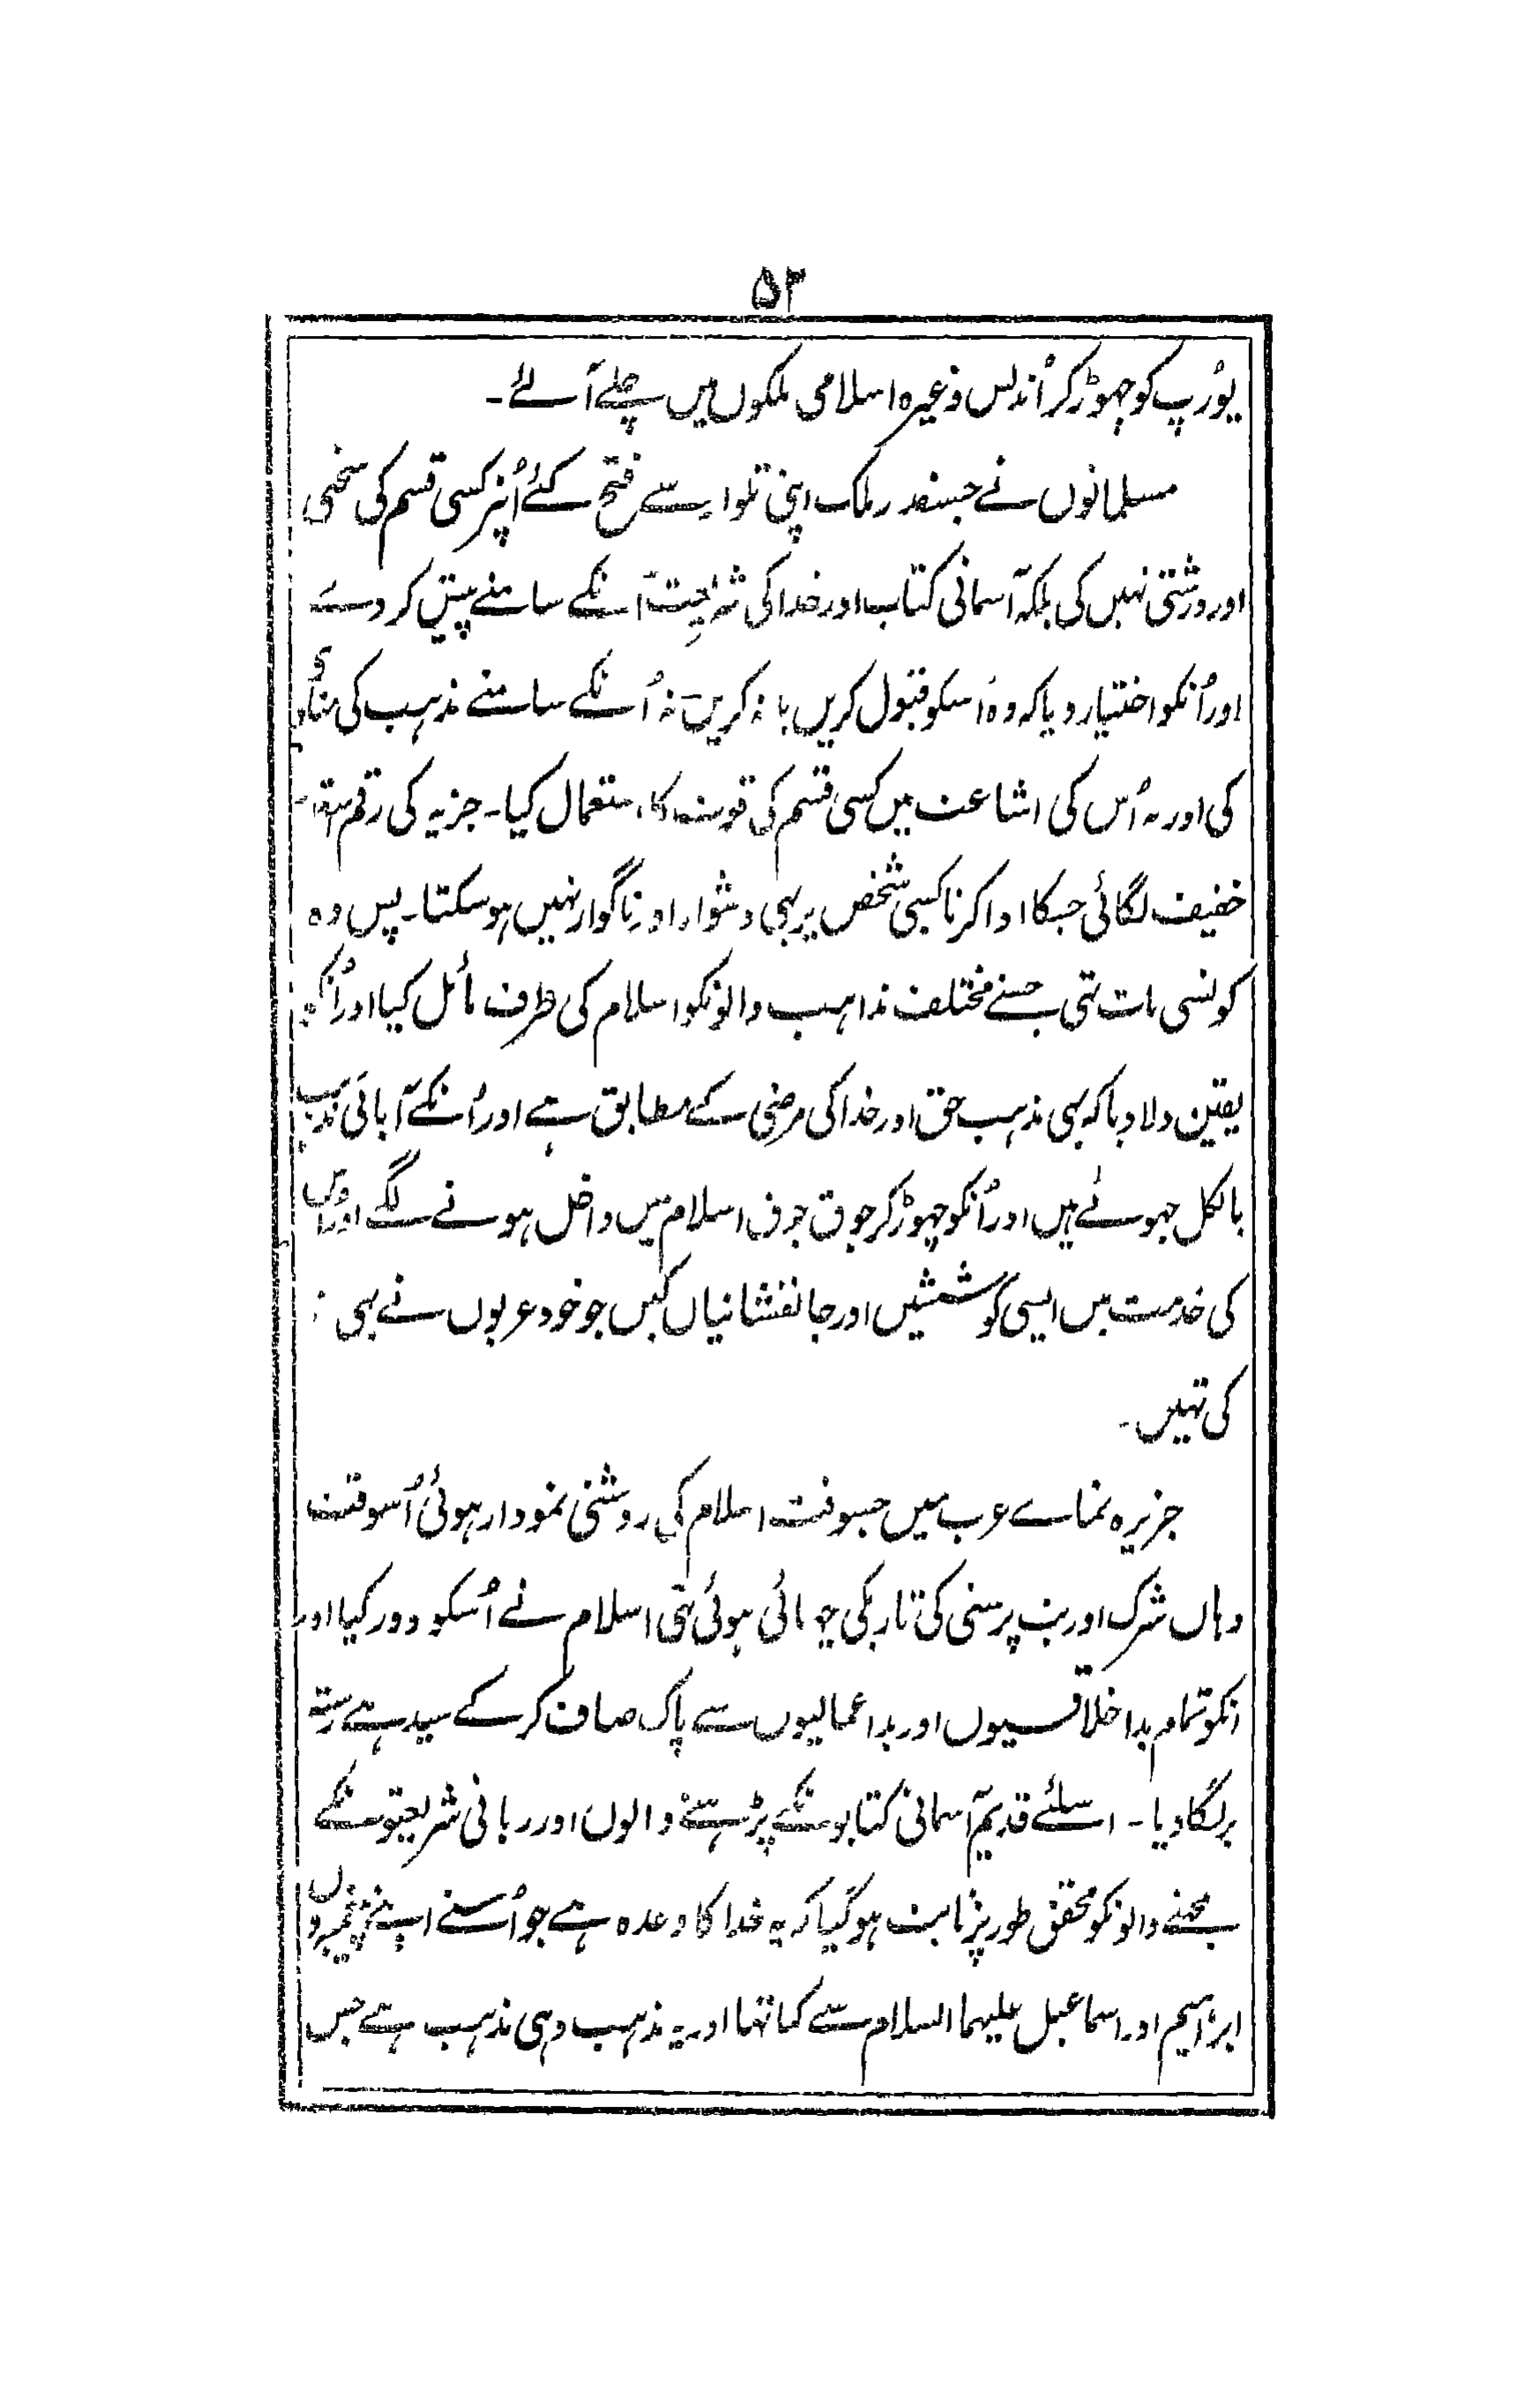 ۵۳
یوُرپ کو چہوڑ کر اُندلس وغیرہ اسلامی ملکوں میں چلے آئے۔
مسلمانوں نے جسقدر ملک اپنی تلوار سے فتح کئے اُنپر کسی قسم کی سختی
اور درشتی نہیں کی بلکہ آسمانی کتاب اور خدا کی شریعت اُنکے سامنے پیش کر دے
اور اُنکو اختیار دیا کہ وہ اُسکو قبول کریں یا نہ کریں نہ اُنکے سامنے مذہب کی منادی
کی اور نہ اُس کی اشاعت میں کسی قسم کی قوت کا استعمال کیا۔ جزیہ کی رقم اسقدر
خفیف لگائی جسکا ادا کرنا کسی شخص پر بہی دشوار اور ناگوار نہیں ہو سکتا۔ پس وہ
کونسی بات تہی جسنے مختلف مذاہب والونکو اسلام کی طرف مائل کیا اور اُنکو
یقین دلا دیا کہ یہی مذہب حق اور خدا کی مرضی کے مطابق ہے اور اُنکے آبائی مذہب
بالکل جہوٹے ہیں اور اُنکو چہوڑ کر جوق جوق اسلام میں داخل ہونے لگے اور اُس
کی خدمت میں ایسی کوششیں اور جانفشانیاں کیں جو خود عربوں نے بہی نہ
کی تہیں۔
جزیرہ نمائے عرب میں جسوقت اسلام کی روشنی نمودار ہوئی اُسوقت
وہاں شرک اور بت پرستی کی تاریکی چہائی ہوئی تہی اسلام نے اُسکو دور کیا اور
انکو تمام بد اخلاقیوں اور بد اعمالیوں سے پاک صاف کر کے سیدہے رستہ
پر لگا دیا۔ اسلئے قدیم آسمانی کتابونکے پڑہنے والوں اور ربانی شریعتونکے
سمجہنے والونکو محقق طور پر ثابت ہو گیا کہ یہ خدا کا وعدہ ہے جو اُسنے اپنے پیغمبروں
ابراہیم اور اسماعیل علیہما السلام سے کیا تہا اور یہ مذہب وہی مذہب ہے جس